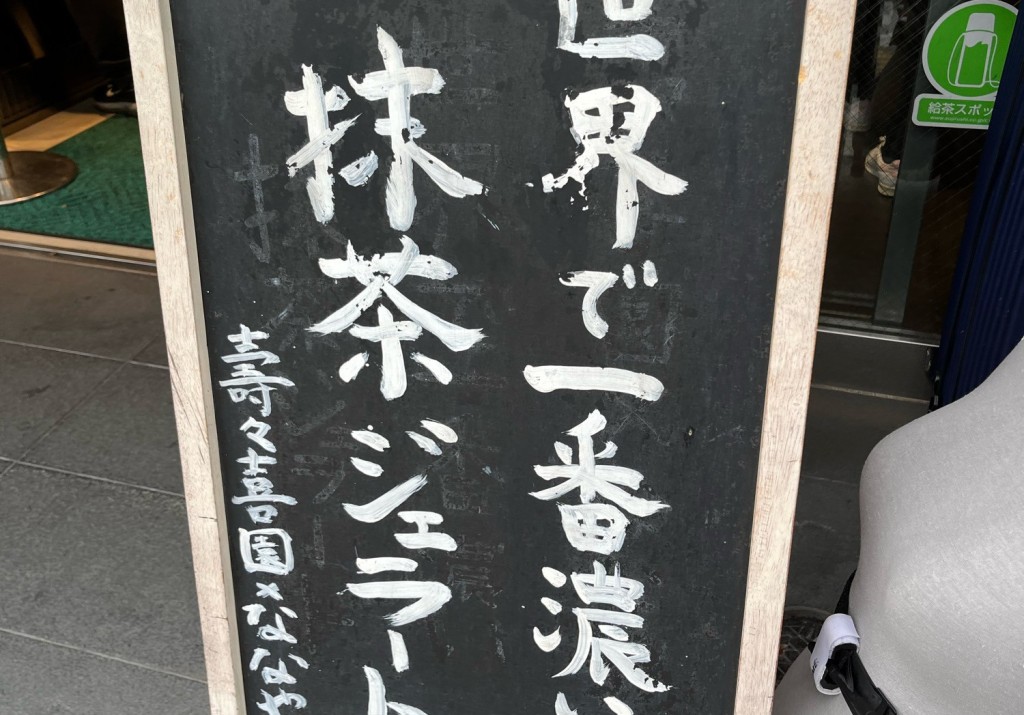 世界で一番濃い
抹茶ジェラート
壽々喜園×ななや
給茶スポッ